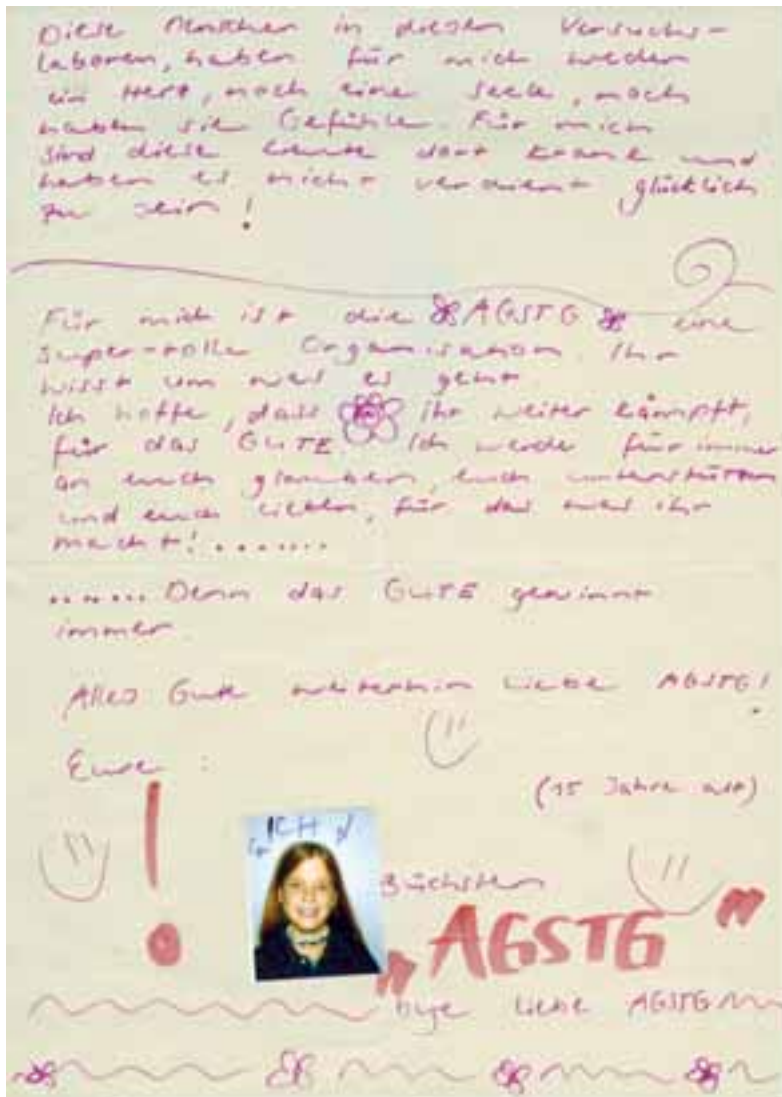 Diese Menschen in diesen Versuchs-
laboren, haben für mich weder
ein Herz, noch eine Seele, noch
haben sie Gefühle. Für mich
sind diese Leute dort krank und
haben es nicht verdient glücklich
zu sein!
Für mich ist die AGSTG eine
super-tolle Organisation. Ihr
wisst um was es geht.
Ich hoffe, dass ihr weiter kämpft,
für das GUTE. Ich werde für immer
an euch glauben, euch unterstützen
und euch lieben, für das was ihr
macht!.......
....... Denn das GUTE gewinnt
immer.
Alles Gute weiterhin liebe AGSTG!
Eure :
(15 Jahre alt)
! ICH
„AGSTG"
bye liebe AGSTG